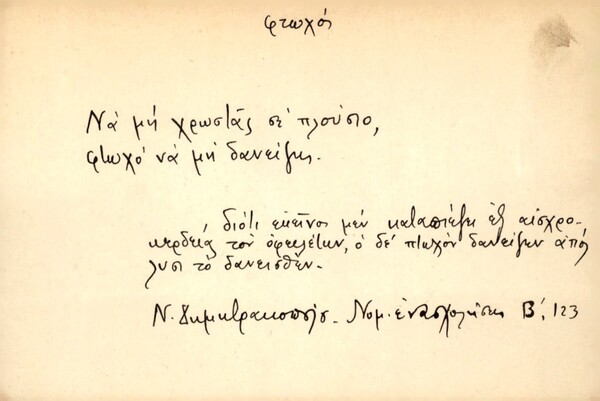 φτωχός
Νά μή χρωστᾷς σέ πλούσιο,
φτωχό νά μή δανείζῃς.
διότι ἐκεῖνος μέν καταπιέζει ἐξ αἰσχρο-
κερδείας τόν ὀφειλέτην, ὁ δέ πτωχόν δανείζων ἀπόλ
λυσι τό δανεισθέν.
Ν. Δημητρακοπούλου - Νομ. ἐνασχολήσεις Β΄, 123